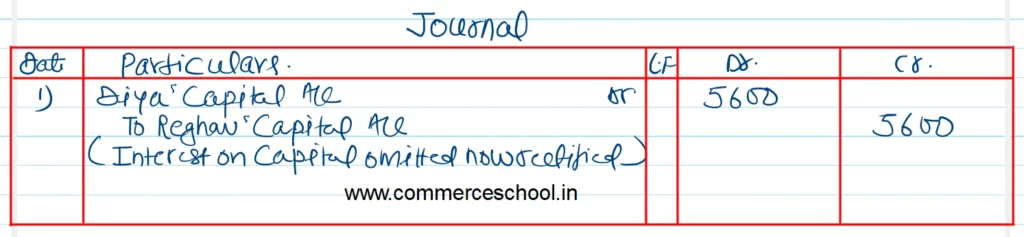 Journal
Dat Particulars. L.F Dr. Cr.
1) Diya's Capital A/c Dr 5600
To Reghav's Capital A/c 5600
(Interest on Capital omitted now rectified)
www.commerceschool.in